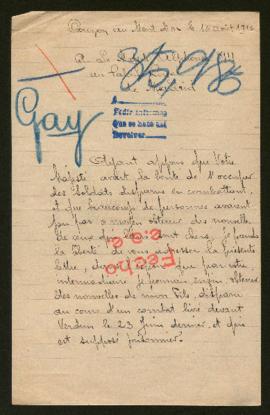 le 15 août 1916
35,986
Gay
A
Pedir informes
Que se haga así
Devolver
Ayant appris que Votre
Majesté avait la bonté de s'occuper
des soldats disparus en combattant,
et que beaucoup de personnes avaient
par ce moyen obtenu des nouvelles
de ceux qui leur sont chers, je prends
la liberté de vous adresser la présente
lettre, dans l'espoir que par votre
intermédiaire je pourrai enfin obtenir
des nouvelles de mon fils, disparu
au cours d'un combat livré devant
Verdun le 23 Juin dernier, et qui
est supposé prisonnier.
Fecho